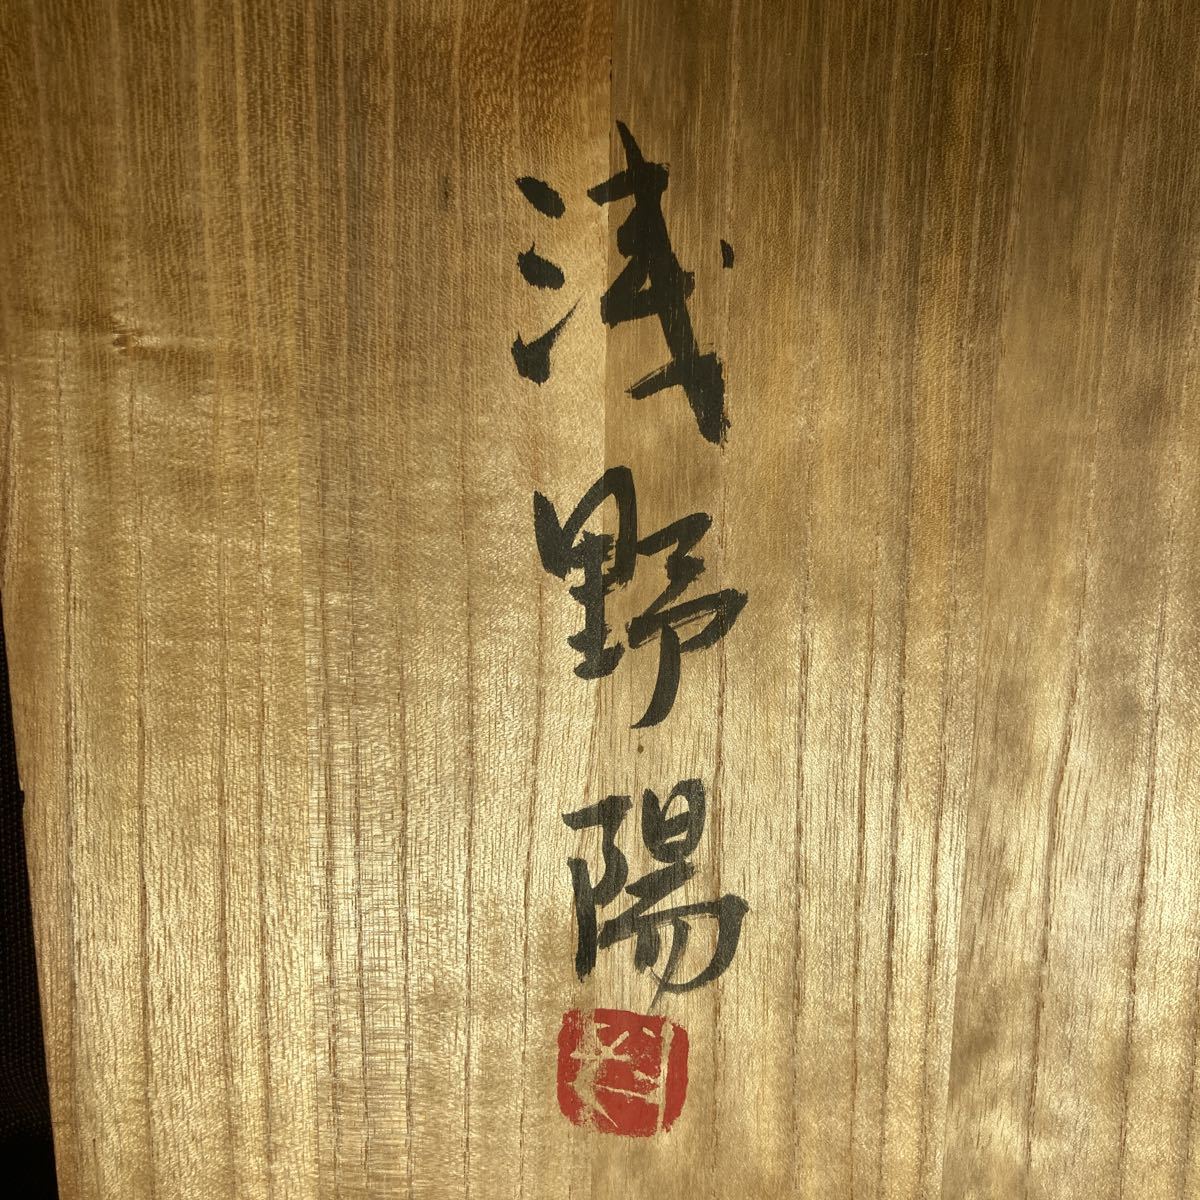 浅野陽